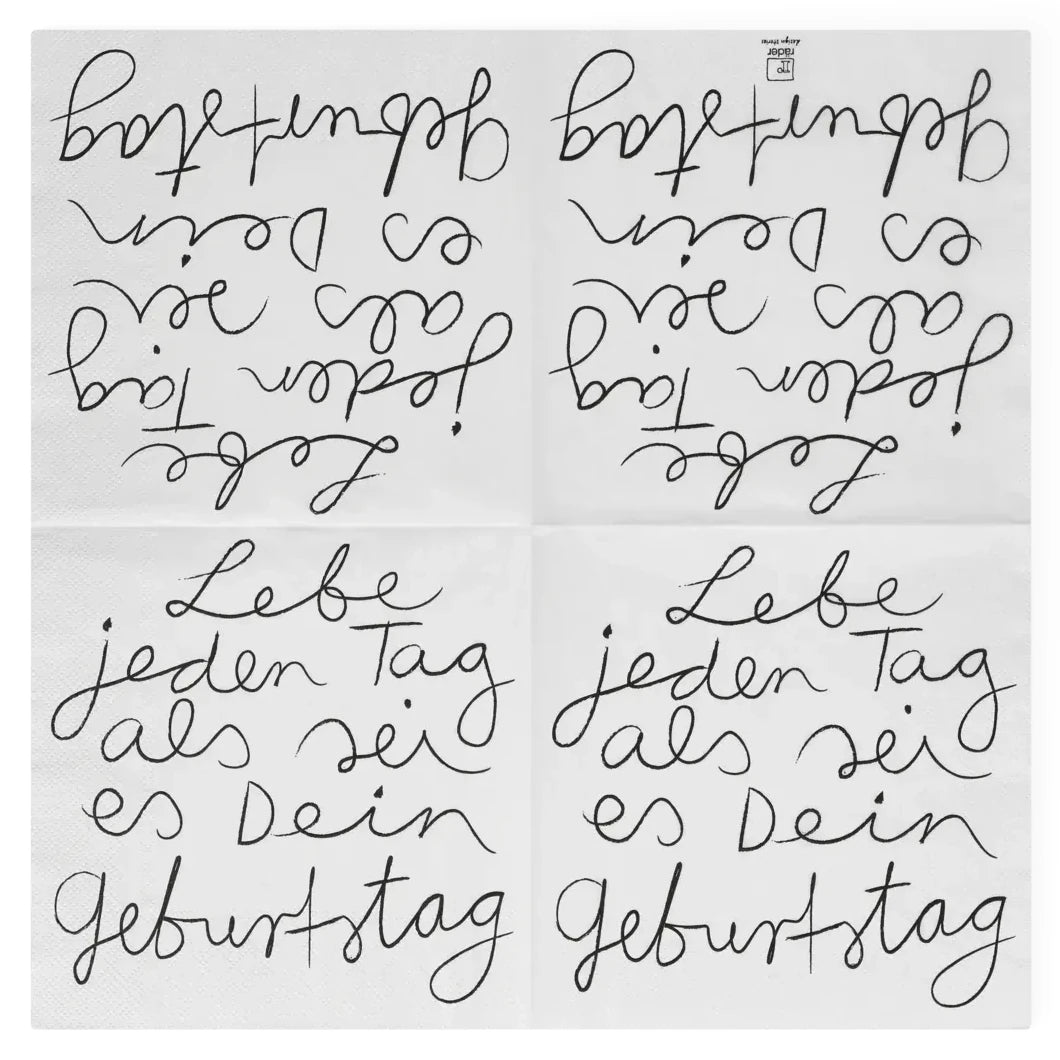 Geburtstag
es Dein
als sei
jeden Tag
Lebe
Geburtstag
es Dein
als sei
jeden Tag
Lebe
räder
design stories
Lebe
jeden Tag
als sei
es Dein
Geburtstag
Lebe
jeden Tag
als sei
es Dein
Geburtstag